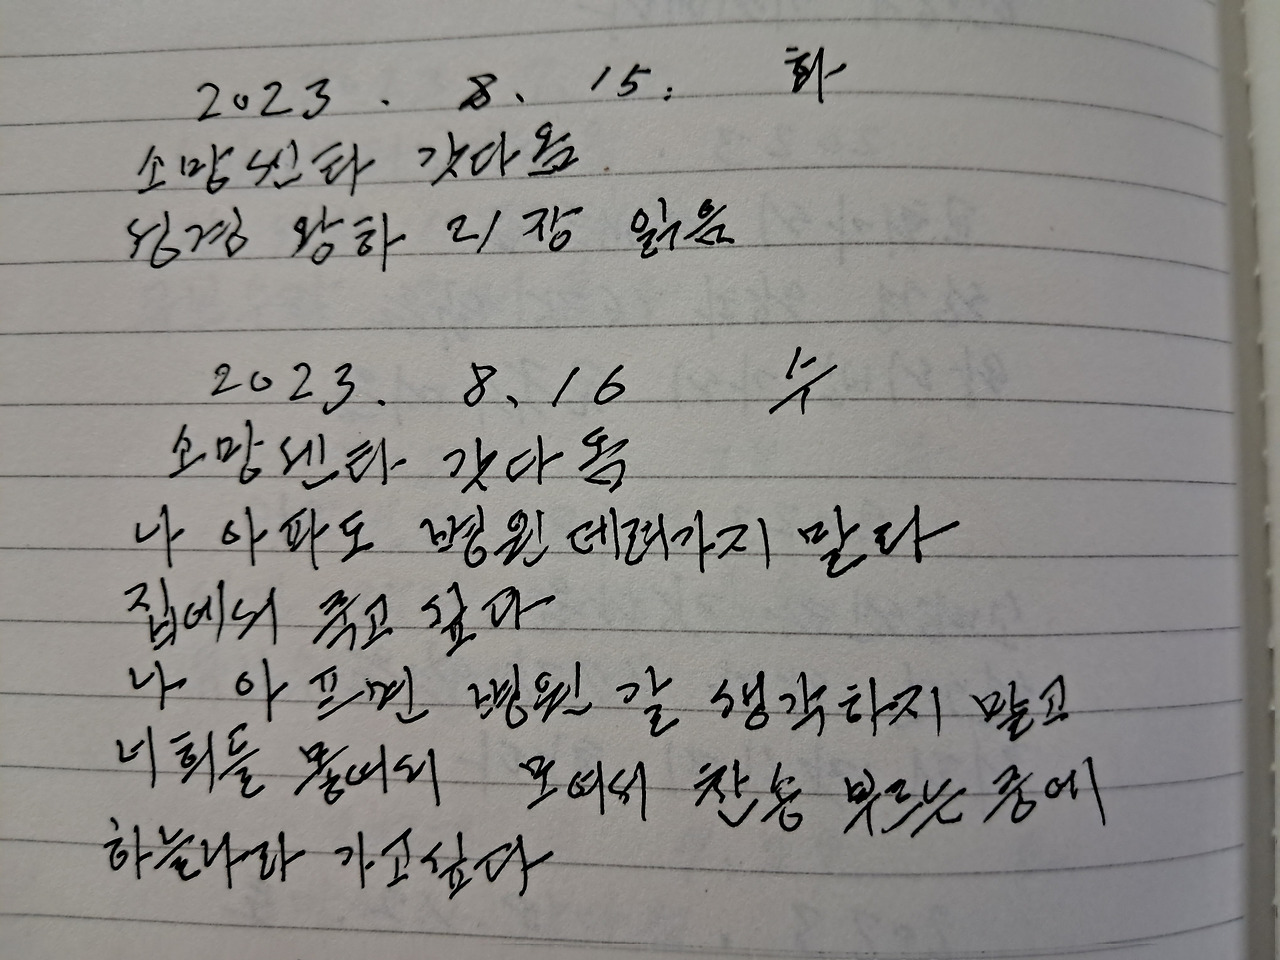 2023. 8. 15. 화
소망센타 갓다옴
성경 왕하 21장 읽음
2023. 8. 16 수
소망센타 갓다옴
나 아파도 병원 데려가지 말라
집에서 죽고 싶다
나 아프면 병원 갈 생각하지 말고
너희들 모여서 찬송 부르는 중에
하늘나라 가고싶다